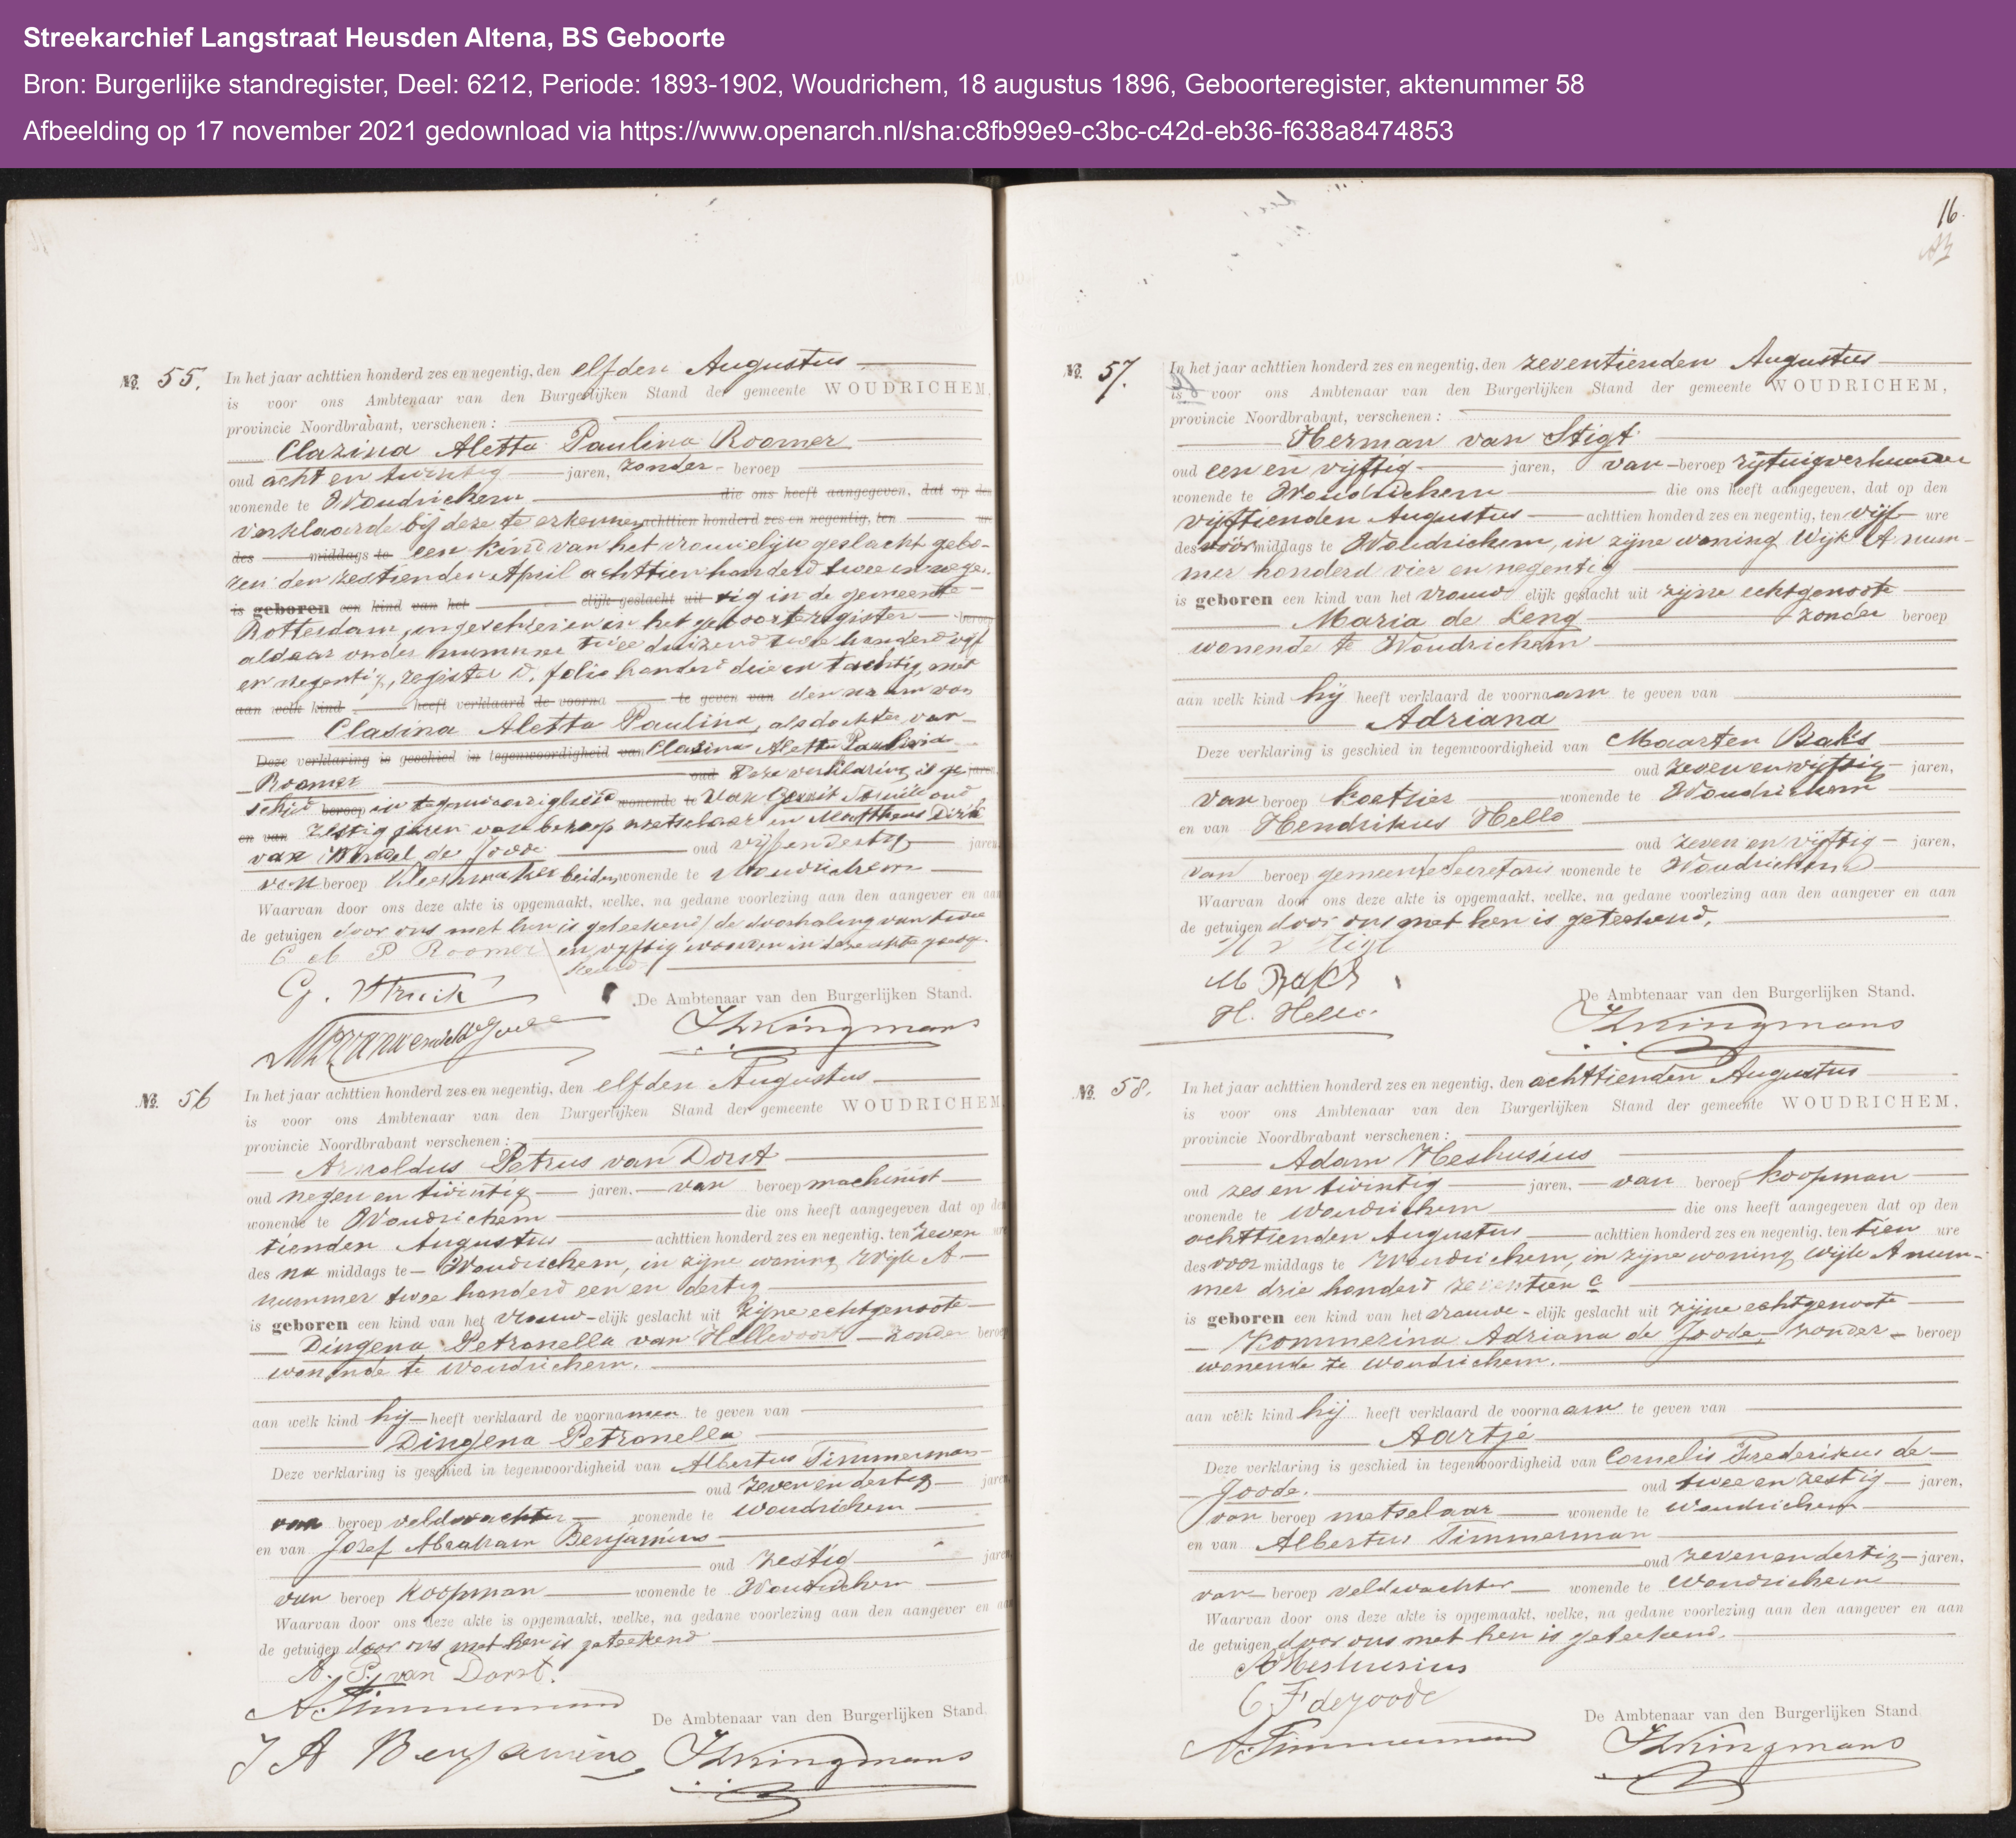 Streekarchief Langstraat Heusden Altena, BS Geboorte
Bron: Burgerlijke standregister, Deel: 6212, Periode: 1893-1902, Woudrichem, 18 augustus 1896, Geboorteregister, aktenummer 58
Afbeelding op 17 november 2021 gedownload via https://www.openarch.nl/sha:c8fb99e9-c3bc-c42d-eb36-f638a8474853
No. 55. In het jaar achttien honderd zes en negentig, den elfden Augustus
is voor ons Ambtenaar van den Burgerlijken Stand der gemeente WOUDRICHEM,
provincie Noordbrabant, verschenen:
Clazina Aletta Paulina Roomer
oud acht en twintig jaren, zonder beroep
wonende te Woudrichem die ons heeft aangegeven, dat op den
verklaarde bij deze te erkennen achttien honderd zes en negentig, ten ure
des middags te een kind van het vrouwelijk geslacht gebo-
ren den zestienden April achttien honderd twee en nege-
is geboren een kind van het elijk geslacht uit tig in de gemeente
Rotterdam, ingeschreven in het geboorteregister beroep
aldaar onder nummer twee duizend twee honderd vijf
en negentig, register D. folio honderd drie en tachtig, met
aan welk kind heeft verklaard de voorna te geven van den naam van
Clasina Aletta Paulina, als dochter van
Deze verklaring is geschied in tegenwoordigheid van Clasina Aletta Paulina
Roomer oud Deze verklaring is ge jaren,
schied beroep in tegenwoordigheid wonende te van Gerrit Struik oud
en van zestig jaren van beroep metselaar en Mattheus Dirk
van Wendel de Joode oud vijf en dertig jaren
van beroep kleermaker beiden wonende te Woudrichem
Waarvan door ons deze akte is opgemaakt, welke, na gedane voorlezing aan den aangever en aan
de getuigen door ons met hen is geteekend, de doorhaling van twee
C A P Roomer en vijftig woorden in deze akte goedge-
keurd
G. Struik
De Ambtenaar van den Burgerlijken Stand.
No. 56 In het jaar achttien honderd zes en negentig, den elfden Augustus
is voor ons Ambtenaar van den Burgerlijken Stand der gemeente WOUDRICHEM,
provincie Noordbrabant verschenen:
Arnoldus Petrus van Dorst
oud negen en twintig jaren, van beroep machinist
wonende te Woudrichem die ons heeft aangegeven dat op den
tienden Augustus achttien honderd zes en negentig, ten zeven ure
des na middags te Woudrichem, in zijne woning Wijk A
nummer twee honderd een en dertig
is geboren een kind van het vrouw-elijk geslacht uit zijne echtgenoote
Dingena Petronella van Hellevoort zonder beroep
wonende te Woudrichem.
aan welk kind hij heeft verklaard de voornamen te geven van
Dingena Petronella
Deze verklaring is geschied in tegenwoordigheid van Albertus Timmerman
oud zeven en dertig jaren
van beroep veldwachter wonende te Woudrichem
en van Jozef Abraham Benjamins
oud zestig jaren
van beroep koopman wonende te Woudrichem
Waarvan door ons deze akte is opgemaakt, welke, na gedane voorlezing aan den aangever en aan
de getuigen door ons met hen is geteekend
A. P. van Dorst.
A. Timmerman
J A Benjamins
De Ambtenaar van den Burgerlijken Stand.
16.
No. 57. In het jaar achttien honderd zes en negentig, den zeventienden Augustus
is voor ons Ambtenaar van den Burgerlijken Stand der gemeente WOUDRICHEM,
provincie Noordbrabant, verschenen:
Herman van Stigt
oud een en vijftig jaren, van beroep rijtuigverhuurder
wonende te Woudrichem die ons heeft aangegeven, dat op den
vijftienden Augustus achttien honderd zes en negentig, ten vijf ure
des vóórmiddags te Woudrichem, in zijne woning Wijk A num-
mer honderd vier en negentig
is geboren een kind van het vrouw elijk geslacht uit zijne echtgenoote
Maria de Leng zonder beroep
wonende te Woudrichem
aan welk kind hij heeft verklaard de voornaam te geven van
Adriana
Deze verklaring is geschied in tegenwoordigheid van Maarten Baks
oud zeven en vijftig jaren,
van beroep koetsier wonende te Woudrichem
en van Hendrikus Hello
oud zeven en vijftig jaren,
van beroep gemeente Secretaris wonende te Woudrichem
Waarvan door ons deze akte is opgemaakt, welke, na gedane voorlezing aan den aangever en aan
de getuigen door ons met hen is geteekend.
M Baks
H. Hello.
De Ambtenaar van den Burgerlijken Stand.
No. 58. In het jaar achttien honderd zes en negentig, den achttienden Augustus
is voor ons Ambtenaar van den Burgerlijken Stand der gemeente WOUDRICHEM,
provincie Noordbrabant verschenen:
Adam Heshusius
oud zes en twintig jaren, van beroep koopman
wonende te Woudrichem die ons heeft aangegeven dat op den
achttienden Augustus achttien honderd zes en negentig, ten tien ure
des voormiddags te Woudrichem, in zijne woning, Wijk A num-
mer drie honderd zeventien c
is geboren een kind van het vrouwe-elijk geslacht uit zijne echtgenoote
Kommerina Adriana de Joode, zonder beroep
wonende te Woudrichem.
aan welk kind hij heeft verklaard de voornaam te geven van
Aartje
Deze verklaring is geschied in tegenwoordigheid van Cornelis Frederikus de
Joode. oud twee en zestig jaren,
van beroep metselaar wonende te Woudrichem
en van Albertus Timmerman
oud zeven en dertig jaren,
van beroep veldwachter wonende te Woudrichem
Waarvan door ons deze akte is opgemaakt, welke, na gedane voorlezing aan den aangever en aan
de getuigen door ons met hen is geteekend.
A Heshusius
C F de Joode
A. Timmerman
De Ambtenaar van den Burgerlijken Stand